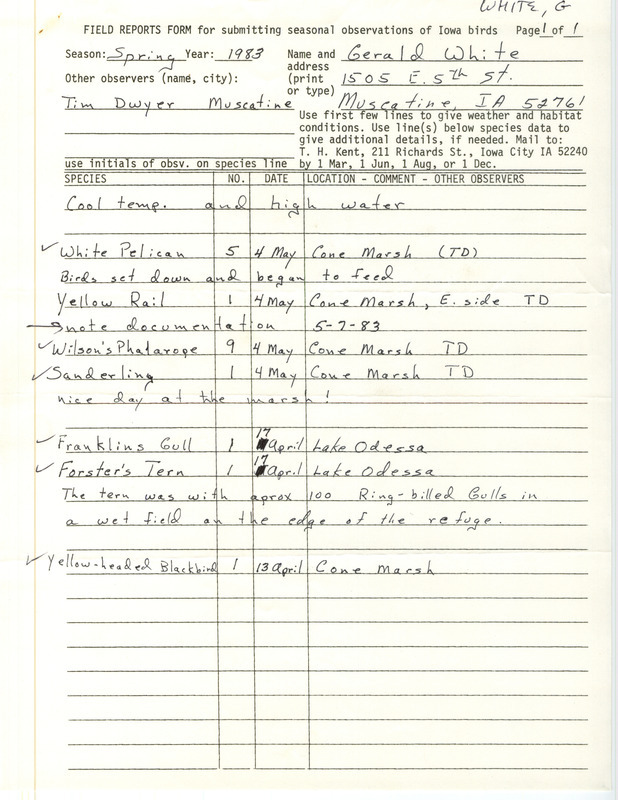 WHITE, G
FIELD REPORTS FORM for submitting seasonal observations of Iowa birds Page 1 of 1
Season: Spring Year: 1983 Name and Gerald White
address
Other observers (name, city): (print 1505 E. 5th St.
or type)
Tim Dwyer Muscatine Muscatine, IA 52761
Use first few lines to give weather and habitat
conditions. Use line(s) below species data to
give additional details, if needed. Mail to:
T. H. Kent, 211 Richards St., Iowa City IA 52240
use initials of obsv. on species line by 1 Mar, 1 Jun, 1 Aug, or 1 Dec.
SPECIES NO. DATE LOCATION - COMMENT - OTHER OBSERVERS
Cool temp. and high water
✓White Pelican 5 4 May Cone Marsh (TD)
Birds set down and began to feed
Yellow Rail 1 4 May Cone Marsh, E. side TD
→ note documentation 5-7-83
✓Wilson's Phalarope 9 4 May Cone Marsh TD
✓Sanderling 1 4 May Cone Marsh TD
nice day at the marsh!
✓Franklins Gull 1 17 April Lake Odessa
✓Forster's Tern 1 17 April Lake Odessa
The tern was with aprox 100 Ring-billed Gulls in
a wet field on the edge of the refuge.
✓Yellow-headed Blackbird 1 13 April Cone Marsh